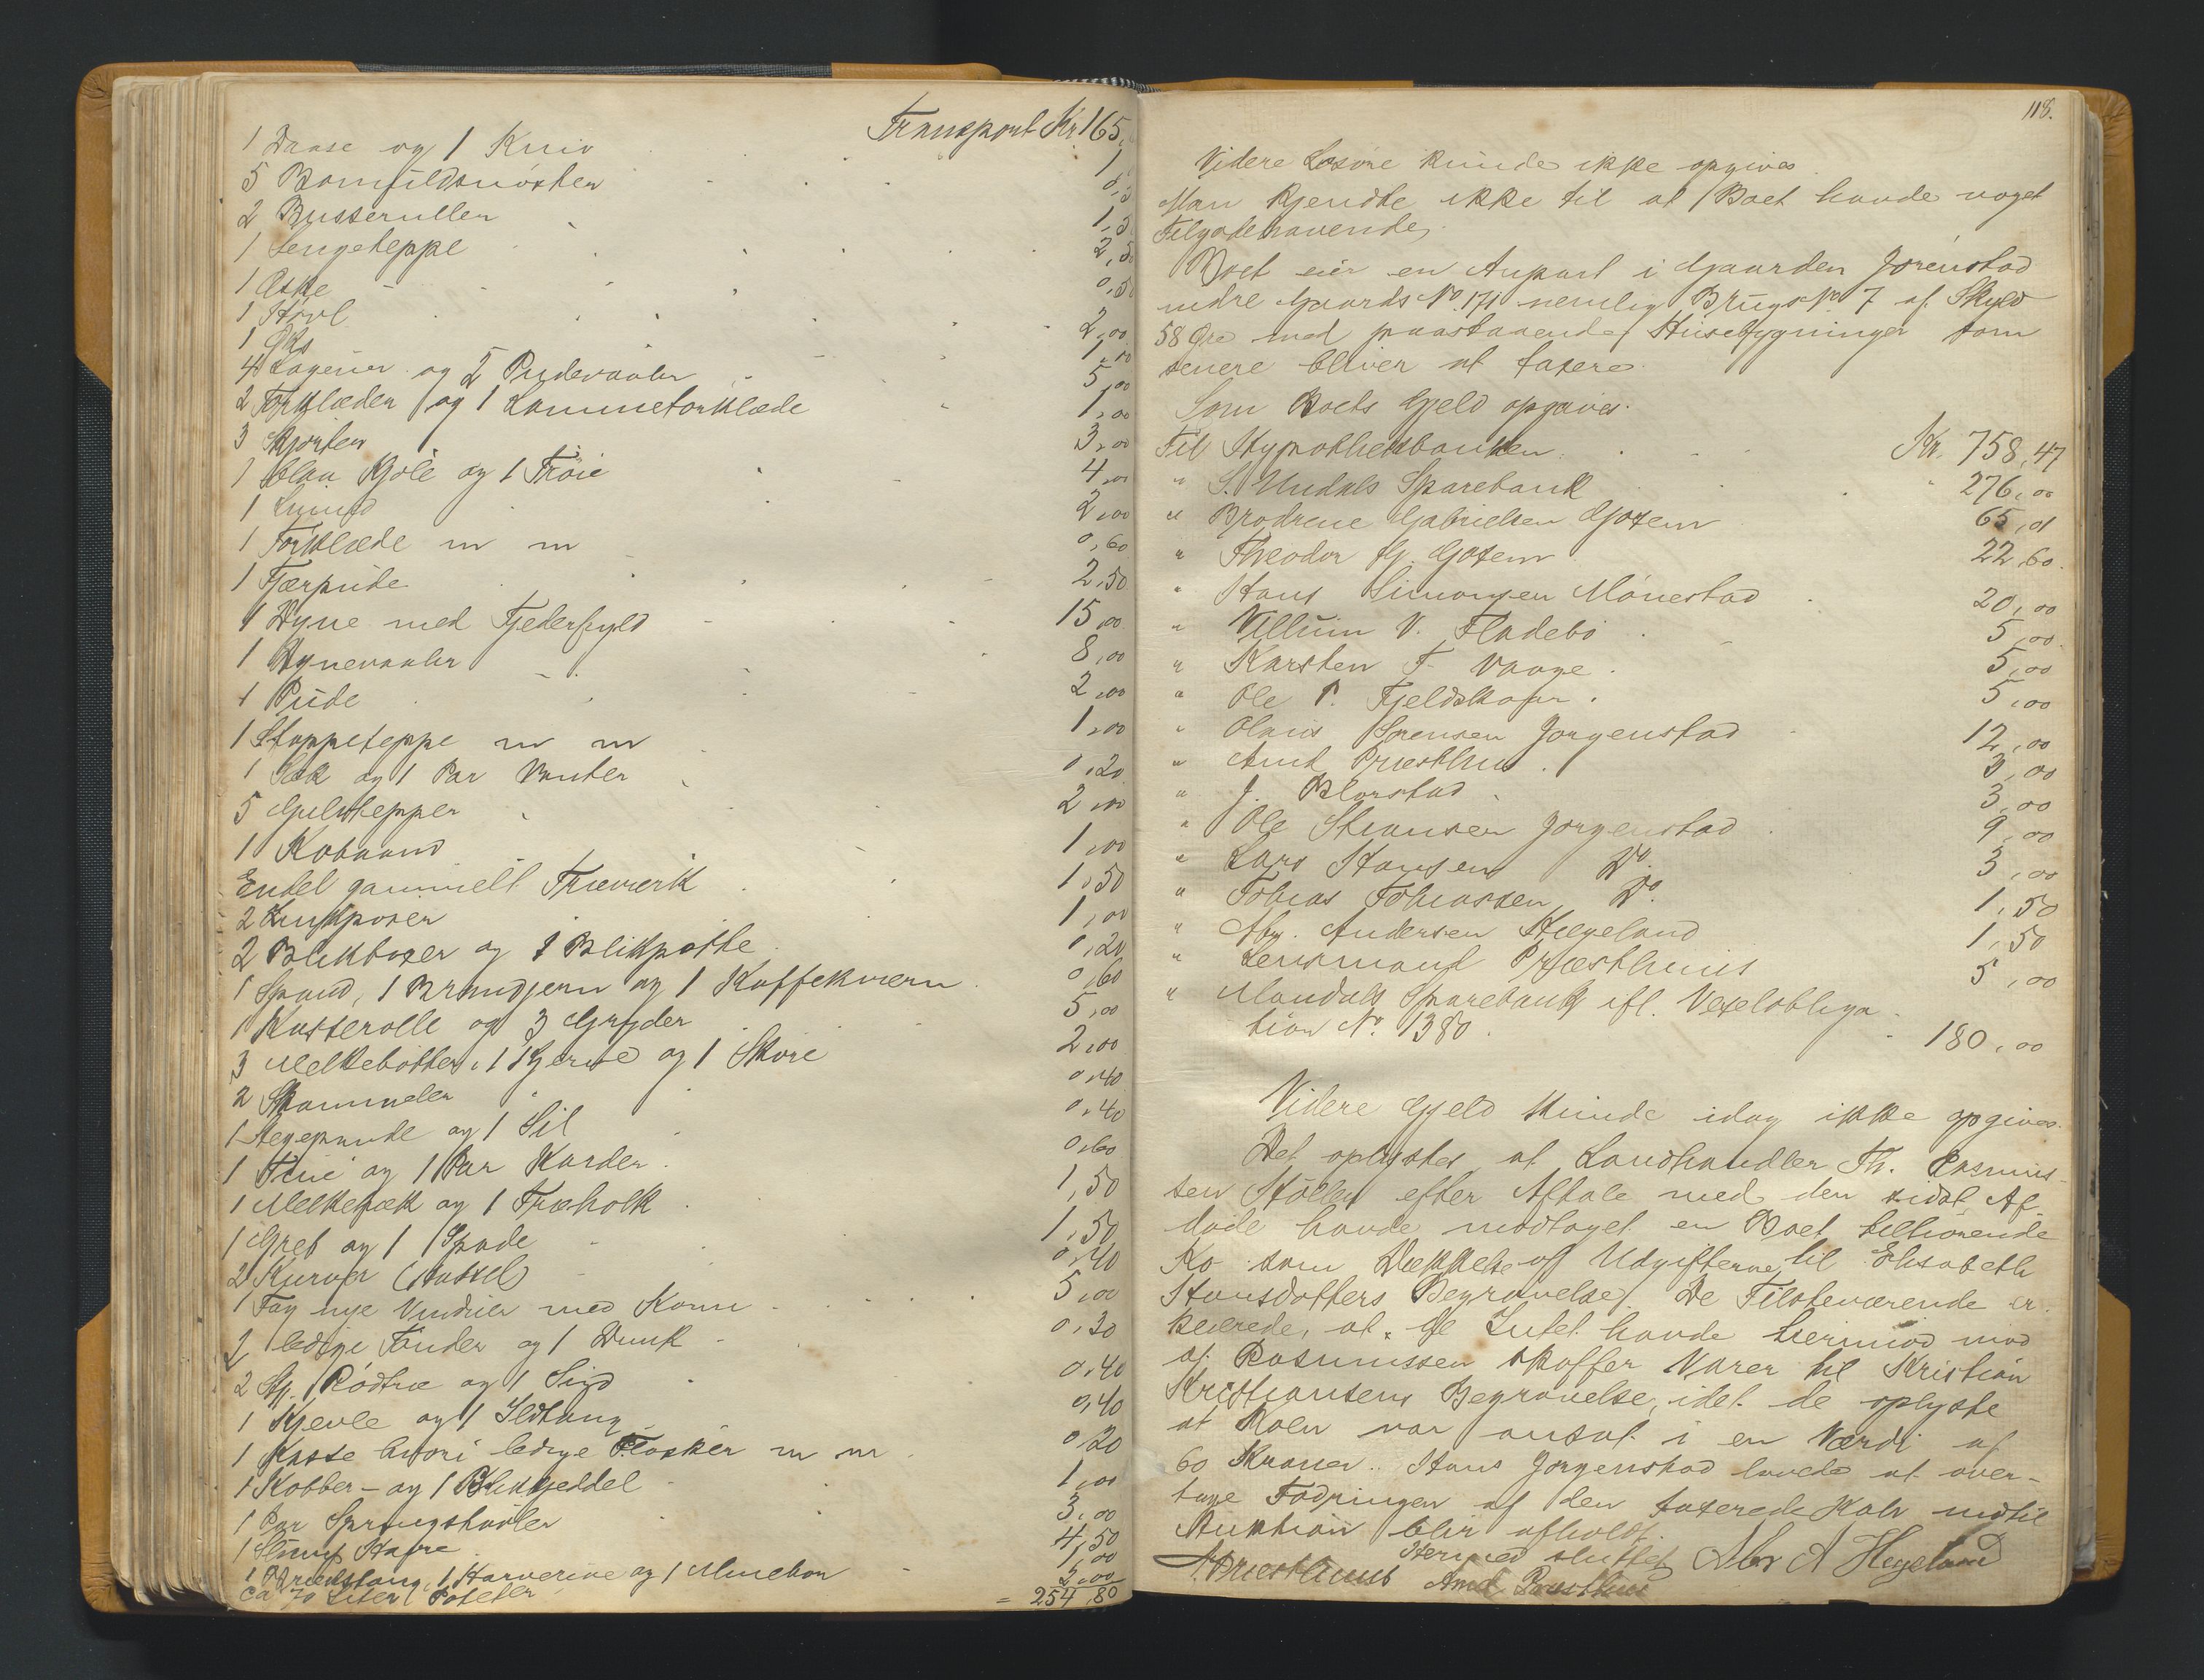 Transport Kr. 165,
1 Daase og 1 Kniv 1
5 Bomuldsnøster 0,5
2 Busseruller 1,5
1 Sengeteppe 2,50
1 Æske 0,50
1 Høvl 2,00
1 Øks 1,10
4 Lagener og 2 Pudevaaler 5,00
2 Forklæder og 1 Lommetørklæde 1,00
3 Skjorter 3,00
1 blaa Kjole og 1 Trøie 4,00
1 2,00
1 Forklæde m m 0,60
1 Fjærpude 2,50
1 Dyne med Fjederfyld 15,00
1 Dynevaaler 8,00
1 Pude 2,00
1 Stoppeteppe m m 1,00
1 Sæk og 1 Par Vanter 0,20
5 Gulvtepper 2,00
1 Kobaand 1,00
Endel gammelt Træværk 1,50
2 1,00
2 Blikboxer og 1 Blikpotte 0,20
1 Spand, 1 Brændjern og 1 Kaffekværn 0,60
1 Kasserolle og 3 Gryder 5,00
3 Melkebøtter, 1 Kjerne og 1 2,00
2 Skammeler 0,40
1 Stegepande og 1 Sil 0,40
1 Tine og 1 Par Karder 0,60
1 Melkebæk og 1 Træholk 1,50
1 Greb og 1 Spade 1,50
2 Kurver (Hassel) 0,40
1 Fag nye Vinduer med Karm 5,00
2 ledige Tønder og 1 Dunk 0,30
2 Stp. Rødtræ og 1 0,40
1 Kjevle og 1 Ildtang 0,40
1 Kasse hvori ledige Flasker m m 0,20
1 Kobber- og 1 Blikkjeddel 1,00
1 Par 3,00
1 Slump Havre 4,50
1 , 1 Harverive og 1 Minebor 1,00
ca 70 Liter Poteter 2,00
= 254,80
118.
Videre Løsøre kunde ikke opgives.
Man kjendte ikke til at Boet havde noget
Tilgodehavende.
Boet eier en Anpart i Gaarden Jørenstad
indre Gaards No. 171 nemlig Brugs No. 7 af Skyld
58 Øre med paastaaende Husebygninger som
senere bliver at taxere.
Som Boets Gjeld opgaves:
Til Hypothekbanken Kr. 758,47
" S. Undals Sparebank " 276,00
" Brødrene Gabrielsen 65,01
" Theodor G. 22,60
" Hans Simonsen Mønestad 20,00
" Villum V. Fladebø 5,00
" Karsten T. Vaage 5,00
" Ole P. Fjeldskaar 5,00
" Olaus Sørensen Jørgenstad 12,00
" Amd Præsthus 3,00
" J. 3,00
" Ole Jørgenstad 9,00
" Lars Hansen Do. 3,00
" Tobias Tobiassen Do. 1,50
" Abr. Andersen Hægeland 1,50
" Lensmand Præsthuus 5,00
" Mandals Sparebank ifl. Vexelobliga-
tion No. 1380 180,00
Videre Gjeld kunde idag ikke opgives.
Det oplystes at Landhandler Th. Rasmus-
sen Stølen efter Aftale med den sidst Af-
døde havde modtaget en Boet tilhørende
Ko som Dækkelse af Udgifterne til Elisabeth
Hansdatters Begravelse. De Tilstedeværende er-
klærede, at de Intet havde herimod mod
at Rasmussen skaffer Varer til Kristian
Kristiansens Begravelse, idet de oplyste
at Koen var ansat i en Værdi af
60 Kroner. Hans Jørgenstad lovede at over-
tage Fodringen af den taxerede Kalv indtil
Auktion blir afholdt.
Hermed sluttet
APræsthuus Amd Præsthus Abr A Hægeland